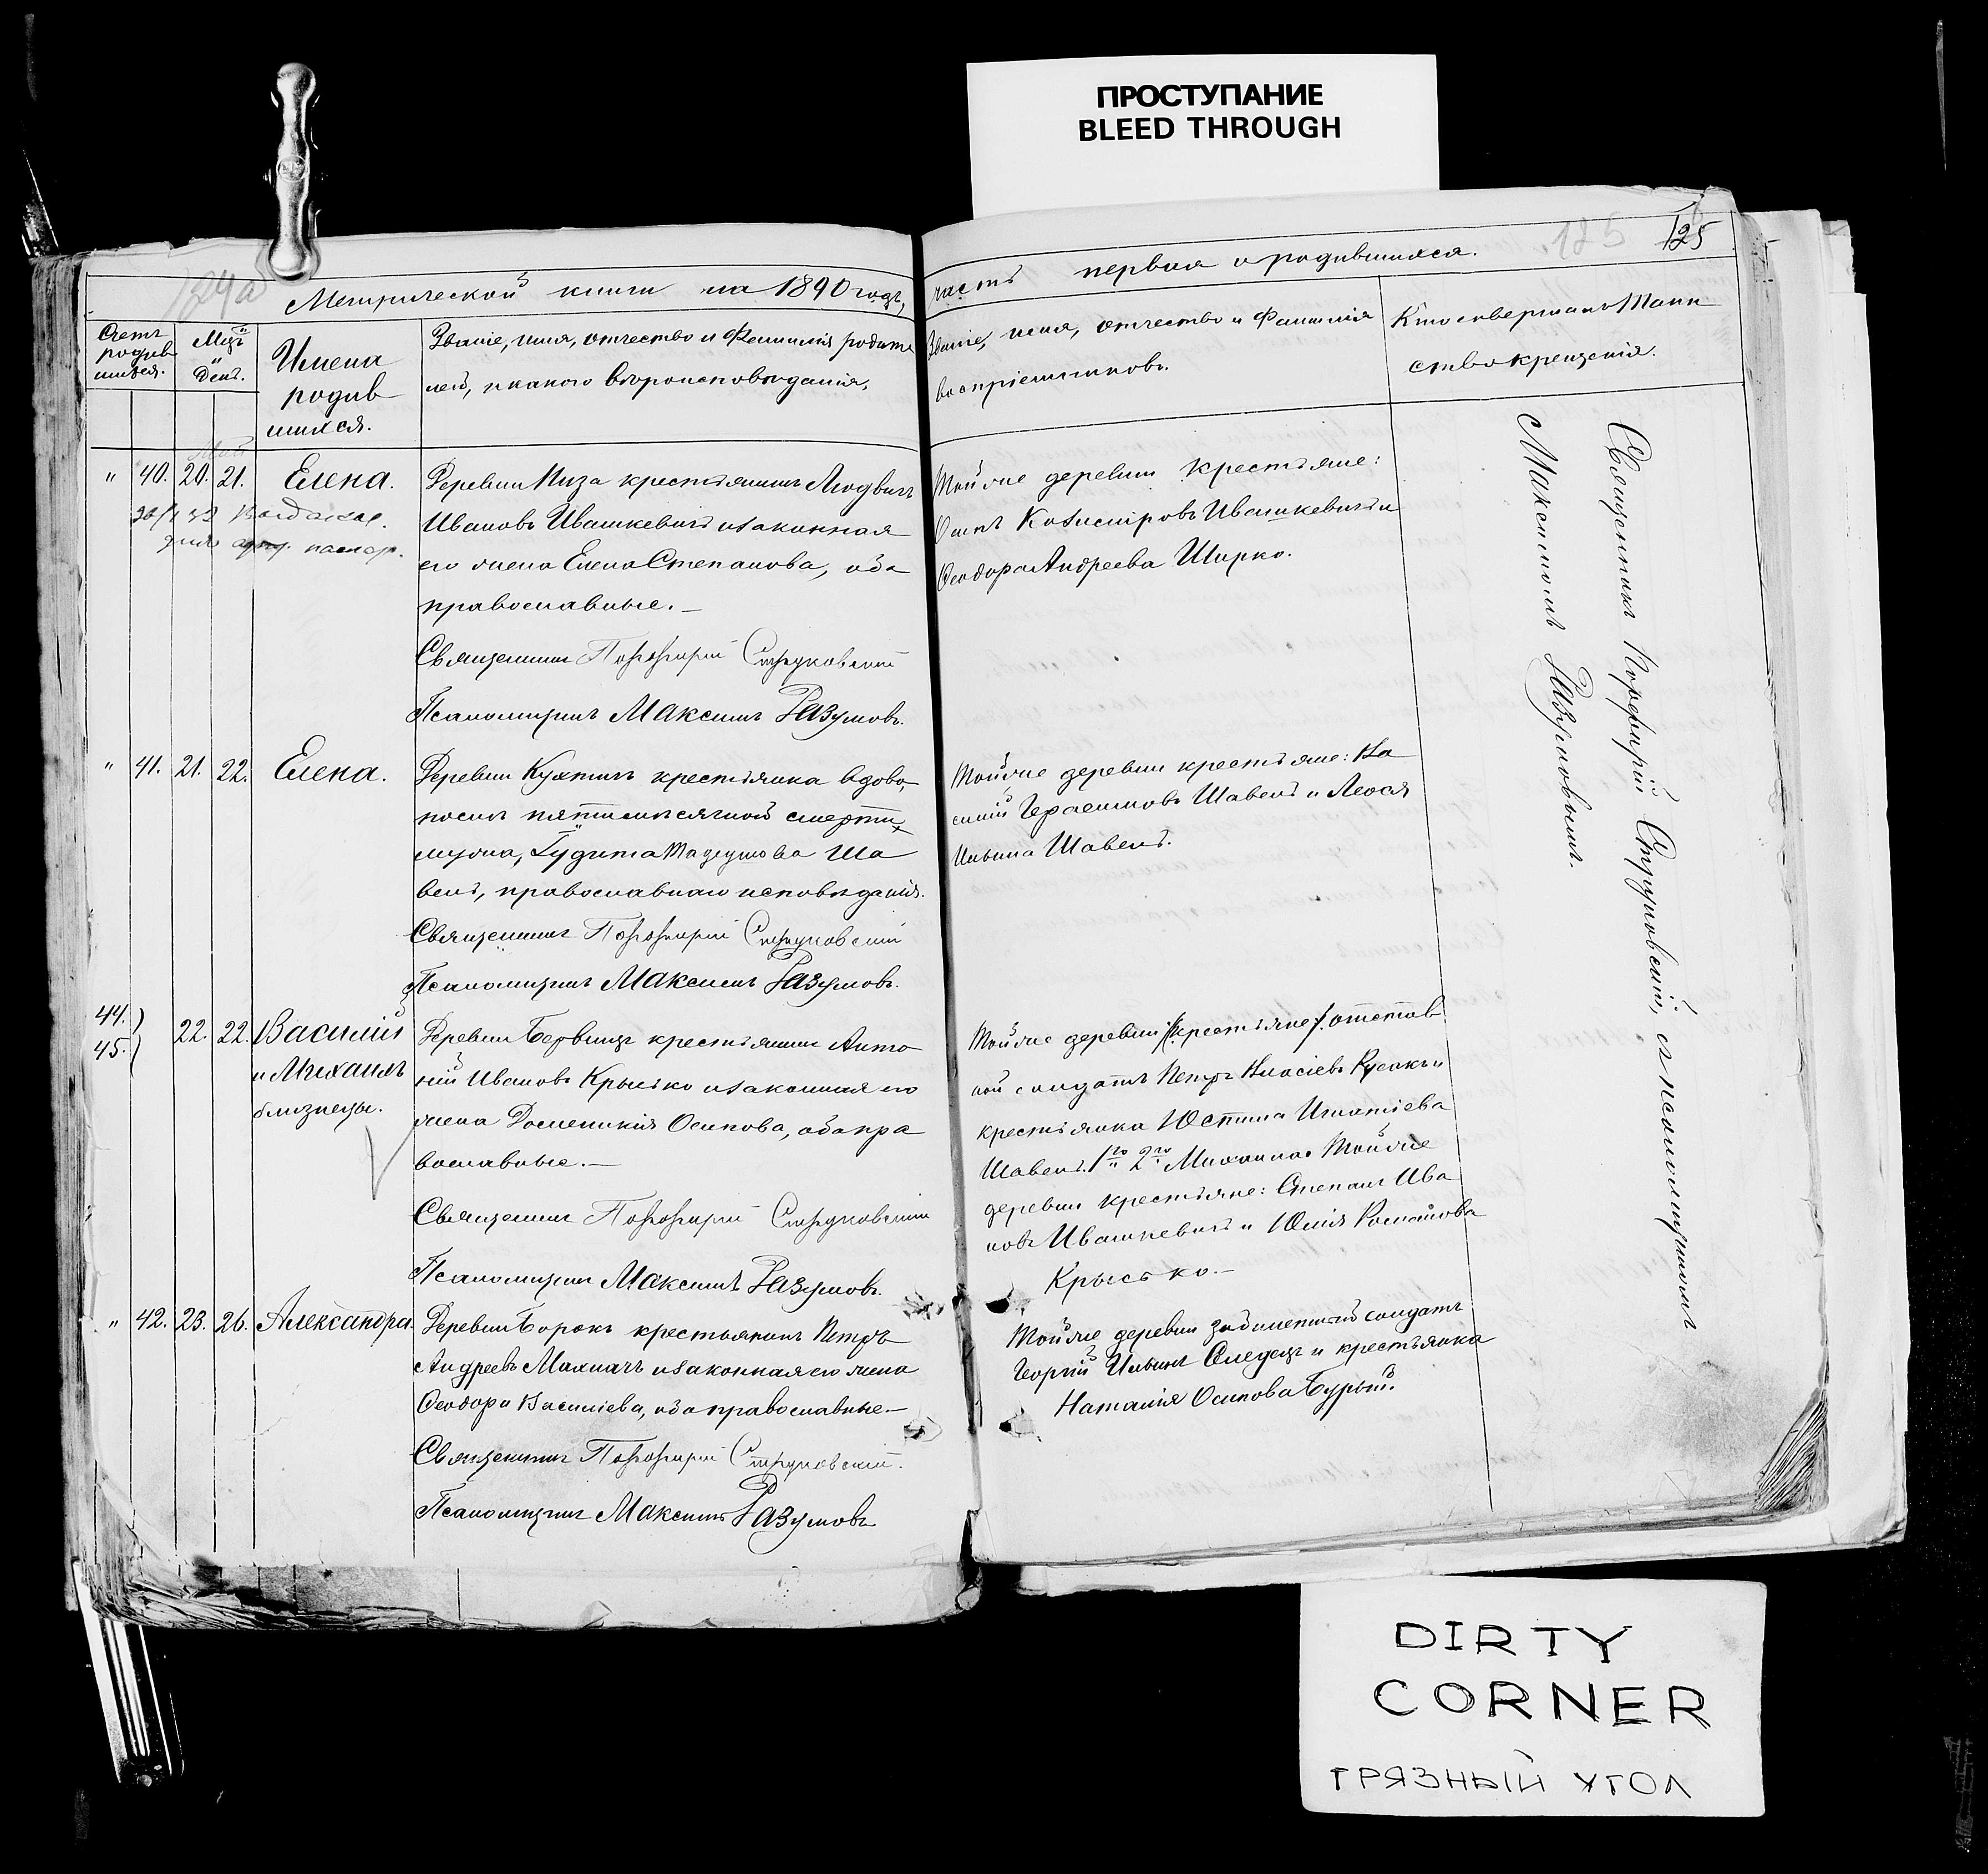 ПРОСТУПАНИЕ
BLEED THROUGH
125
125
124а
Метрической книги на 1890 годъ,
часть первая о родившихся.
Счетъ
родив
шихся.
Мцъ
и
День.
Имена
родив
шихся.
Званіе, имя, отчество и Фамилія родите
лей, и какого вѣроисповѣданія.
Званіе, имя, отчество и Фамилія
воспріемниковъ.
Кто совершалъ Таин
ство крещенія.
" 40. 20. 21. Елена.
Деревни Миза крестьянинъ Людвигъ
Ивановъ Ивашкевичъ и законная
его жена Елена Степанова, оба
православные. —
Священникъ Порфирій Струковскій
Псаломщикъ Максимъ Разумовъ.
Той же деревни крестьяне:
Осипъ Казиміровъ Ивашкевичъ и
Ѳеодора Андреева Ширко.
" 41. 21. 22. Елена.
Деревни Кухтичъ крестьянка вдова,
послѣ пятимѣсячной смерти
мужа, Іудита Тадеушова Ша
вель, православнаго исповѣданія.
Священникъ Порфирій Струковскій
Псаломщикъ Максимъ Разумовъ.
Той же деревни крестьяне: Ва
силій Герасимовъ Шавель и
Ильина Шавель.
44.)
45.)
22. 22. Василій
и Михаилъ
близнецы.
Деревни крестьянинъ Анто
ній Ивановъ Крысько и законная его
жена Доменикія Осипова, оба пра
вославные. —
Священникъ Порфирій Струковскій
Псаломщикъ Максимъ Разумовъ.
Той же деревни (крестьяне). отстав
ной солдатъ Петръ Власіевъ Русакъ и
крестьянка Юстина Игнатіева
Шавель. 1го 2го Михаила: Той же
деревни крестьяне: Степанъ Ива
новъ Ивашкевичъ и Юлія Романова
Крысько. —
" 42. 23. 26. Александра.
Деревни Борокъ крестьянинъ Петръ
Андреевъ Махначъ и законная его жена
Ѳеодора Василіева, оба православные. —
Священникъ Порфирій Струковскій.
Псаломщикъ Максимъ Разумовъ
Той же деревни солдатъ
Георгій Ильинъ Следецъ и крестьянка
Наталія Осипова Бурый.
Священникъ Порфирій Струковскій, съ псаломщикомъ
Максимомъ Разумовымъ.
DIRTY
CORNER
ГРЯЗНЫЙ УГОЛ